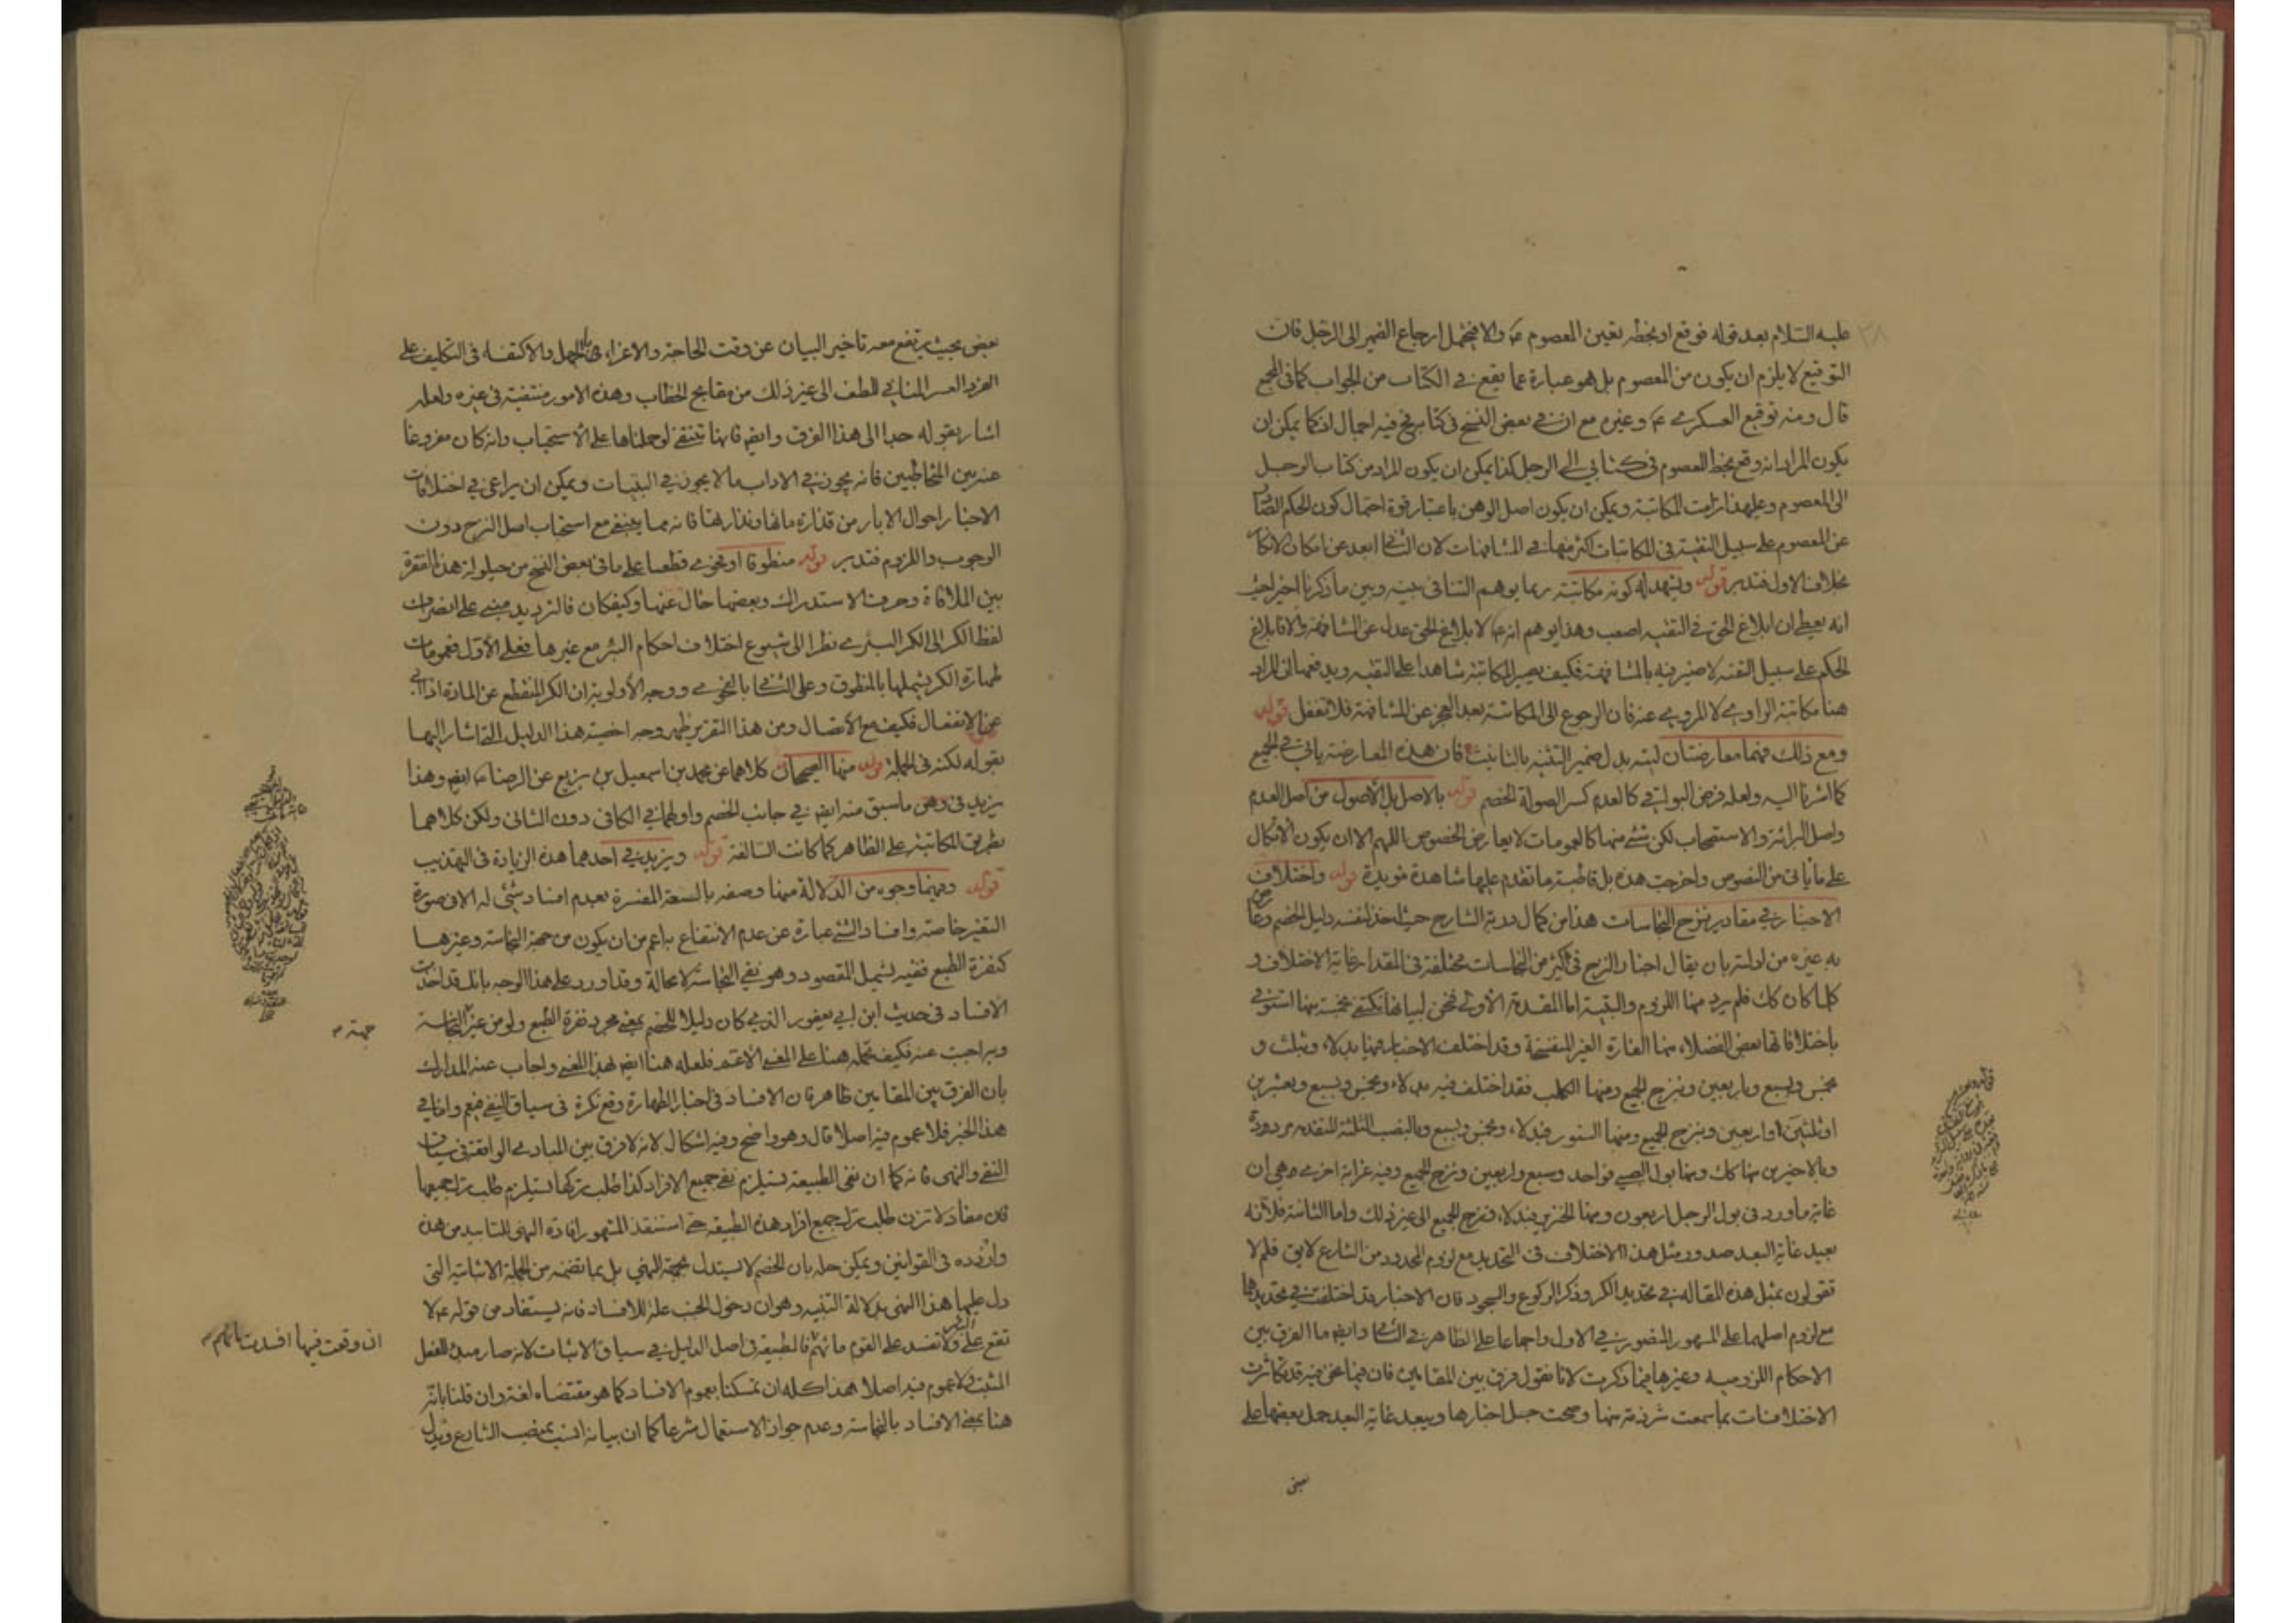 عليه السلام بعد قوله فوقع او بخطه تعين المعصوم ع والا فيحتمل ارجاع الضمير الى الرجل فان
التوقيع لا يلزم ان يكون من المعصوم بل هو عبارة عما يقع في الكتاب من الجواب كما في المجمع
قال ومنه توقيع العسكري ع وغيره مع ان في بعض النسخ في كتابه فيه اجمال اذ كما يمكن ان
يكون المراد انه وقع بخط المعصوم في كتابي الى الرجل كذا يمكن ان يكون المراد من كتاب الرجل
الى المعصوم وعليهذا المكاتبة ويمكن ان يكون اصل الوهن باعتبار قوة احتمال كون الحكم الصادر
عن المعصوم على سبيل التقية في المكاتبات اكثر منها في المشافهات لان الثاني ابعد عن امكان الانكار
بخلاف الاول فتدبر قوله ويشهد له كونه مكاتبة ربما يوهم التنافي بينه وبين ما ذكرنا اخيرا حيث
انه يعطى ان ابلاغ الحق في التقية اصعب وهذا يوهم انه ع لابلاغ الحق عدل عن المشافهة والا فابلاغ
الحكم على سبيل التقية لا ضير فيه بالمشافهة فكيف يصير المكاتبة شاهدا على التقية ويدفعه ان المراد
هنا مكاتبة الراوي لا المروي عنه فان الرجوع الى المكاتبة بعد العجز عن المشافهة فلا تغفل قوله
ومع ذلك فهما معارضتان ليته بدل ضمير التثنية بالتانيث فان هذه المعارضة ياتي في الجميع
كما اشرنا اليه ولعله فرض البواقي كالعدم كسر الصولة الخصم قوله بالاصل بل الاصول من اصل العدم
واصل البرائة والاستصحاب لكن شئ منها كالعمومات لا يعارض الخصوص اللهم الا ان يكون الاتكال
على ما ياتي من النصوص واخرجت هذه بل قاطبة ما تقدم عليها شاهدة مؤيدة قوله واختلاف
الاخبار في مقادير نزح النجاسات هذا من كمال الشارح حيث اخذ لنفسه دليل الخصم
به غيره من ادلته بان يقال اخبار النزح في اكثر من النجاسات مختلفة في المقدار غاية الاختلاف و
كلما كان كك فلم يرد منها اللزوم والبقية اما المقدمة الاولى فنحن لبيانها نكتفي بخمسة منها استوفى
باختلافاتها بعض الفضلاء منها الفارة الغير المنفسخة وقد اختلف الاخبار فيها بدلاء وبثلث و
بخمس وبسبع وباربعين وبنزح الجميع ومنها الكلب فقد اختلف فيه بدلاء وبخمس وبسبع وبعشرين
او ثلثين او اربعين وبنزح الجميع ومنها السنور فبدلاء وبخمس وبسبع وبالنصب الثلثة المتقدمة مردودة
وبالاخيرين منها كك ومنها بول الصبي فواحد وسبع واربعين ونزح الجميع وفيه غرابة اخرى وهي ان
غاية ما ورد في بول الرجل اربعون ومنها الخنزير فبدلاء فنزح الجميع الى غير ذلك واما الثانية فلانه
بعيد غاية البعد صدور مثل هذا الاختلاف في التحديد مع لزوم المحدود من الشارع لايق فلم لا
تقولون بمثل هذه المقالة في تحديد الكر وذكر الركوع والسجود فان الاخبار قد اختلفت في تحديدها
مع لزوم اصلهما على المشهور المنصور في الاول واجماعا على الظاهر في الثاني وايضا ما الفرق بين
الاحكام اللزومية وغيرها فيما ذكرت لانا نقول فرق بين المقامين فان فيما نحن فيه قد تكاثرت
الاختلافات بما سمعت شرذمة منها وصحت جل اخبارها ويبعد غاية البعد حمل بعضها على
بعض
بعض بحيث يرتفع معه تاخير البيان عن وقت الحاجة والاغراء بالجهل والاكتفاء في التكليف على
الفرد العسر المنافي للطف الى غير ذلك من مقابح الخطاب وهذه الامور منتفية في غيره ولعله
اشار بقوله جدا الى هذا الفرق وايضا فانها تنتفي لو حملناها على الاستحباب وانه كان مفروغا
عنه بين المتخاطبين فانه يجوز في الاداب ما لا يجوز في ويمكن ان يراعى في اختلافات
الاخبار احوال الابار من قذارة مائها ونذارتها فانه مما ينبغي مع استحباب اصل النزح دون
الوجوب واللزوم فتدبر قوله منطوقا او فحوى قطعا على ما في بعض النسخ من حيلولة هذه الفقرة
بين الملاقاة وحرف الاستدراك وبعضها خال عنها وكيفكان فالترديد مبني على انصراف
لفظ الكر الى الكر البئري نظرا الى شيوع اختلاف احكام البئر مع غيرها فعلى الاول فعمومات
طهارة الكر يشملها بالمنطوق وعلى الثاني بالفحوى ووجه الاولوية ان الكر المنقطع عن المادة اذا
عن الانفعال فكيف مع الاتصال ومن هذا التقرير ظهر وجه اخصية هذا الدليل التي اشار اليها
بقوله لكنه في الجملة قوله منها الصحيحان كلاهما عن محمد بن اسمعيل بن بزيع عن الرضا ع ايضا وهذا
يزيد في وهن ما سبق منه ايضا في جانب الخصم واولهما في الكافي دون الثاني ولكن كلاهما
بطريق المكاتبة على الظاهر كما كانت السالفة قوله ويزيد في احدهما هذه الزيادة في التهذيب
قوله وفيهما وجوه من الدلالة منها وصفه بالسعة المفسرة بعدم افساد شئ له الا في صورة
التغير خاصة وافساد الشئ عبارة عن عدم الانتفاع به اعم من ان يكون من جهة النجاسة وغيرها
كنفرة الطبع فنفيه يشمل المقصود وهو نفي النجاسة لا محالة وقد اورد على هذا الوجه بانك قد اخذت
الافساد في حديث ابن ابي يعفور الذي كان دليلا للخصم بمعنى مجرد نفرة الطبع ولو من غير النجاسة
جهة
وبه اجبت عنه فكيف تحمله هنا على المعنى الاعم فلعله هنا ايضا بهذا المعنى واجاب عنه المدارك
بان الفرق بين المقامين ظاهر فان الافساد في اخبار الطهارة وقع نكرة في سياق النفي فيعم واما في
هذا الخبر فلا عموم فيه اصلا قال وهو واضح وفيه اشكال لانه لا فرق بين المبادي الواقعة في سياق
النفي والنهي فانه كما ان نفي الطبيعة يستلزم نفي جميع الافراد كذا طلب تركها يستلزم طلب ترك جميعها
فان مفاد لا تزن طلب ترك جميع افراد هذه الطبيعة حتى استنقذ المشهور افادة النهي للتابيد من هذه
في القوانين ويمكن حله بان الخصم لا يستدل بجهة النهي بل بما تضمنه من الجملة الاثباتية التي
دل عليها هذا النهي بدلالة التنبيه وهو ان دخول الجنب علة للافساد فانه يستفاد من قوله ع لا
تقع على البئر ولا تفسد على القوم مائهم فالطبيعة في اصل الدليل في سياق الاثبات لانه صار مبدء للفعل
ان وقعت فيها افسدت مائهم
المثبت ولا عموم فيه اصلا هذا كله ان تمسكنا بعموم الافساد كما هو مقتضاه لغة وان قلنا بانه
هنا بمعنى الافساد بالنجاسة وعدم جواز الاستعمال شرعا كما ان بيانه انسب بمنصب الشارع ويدل